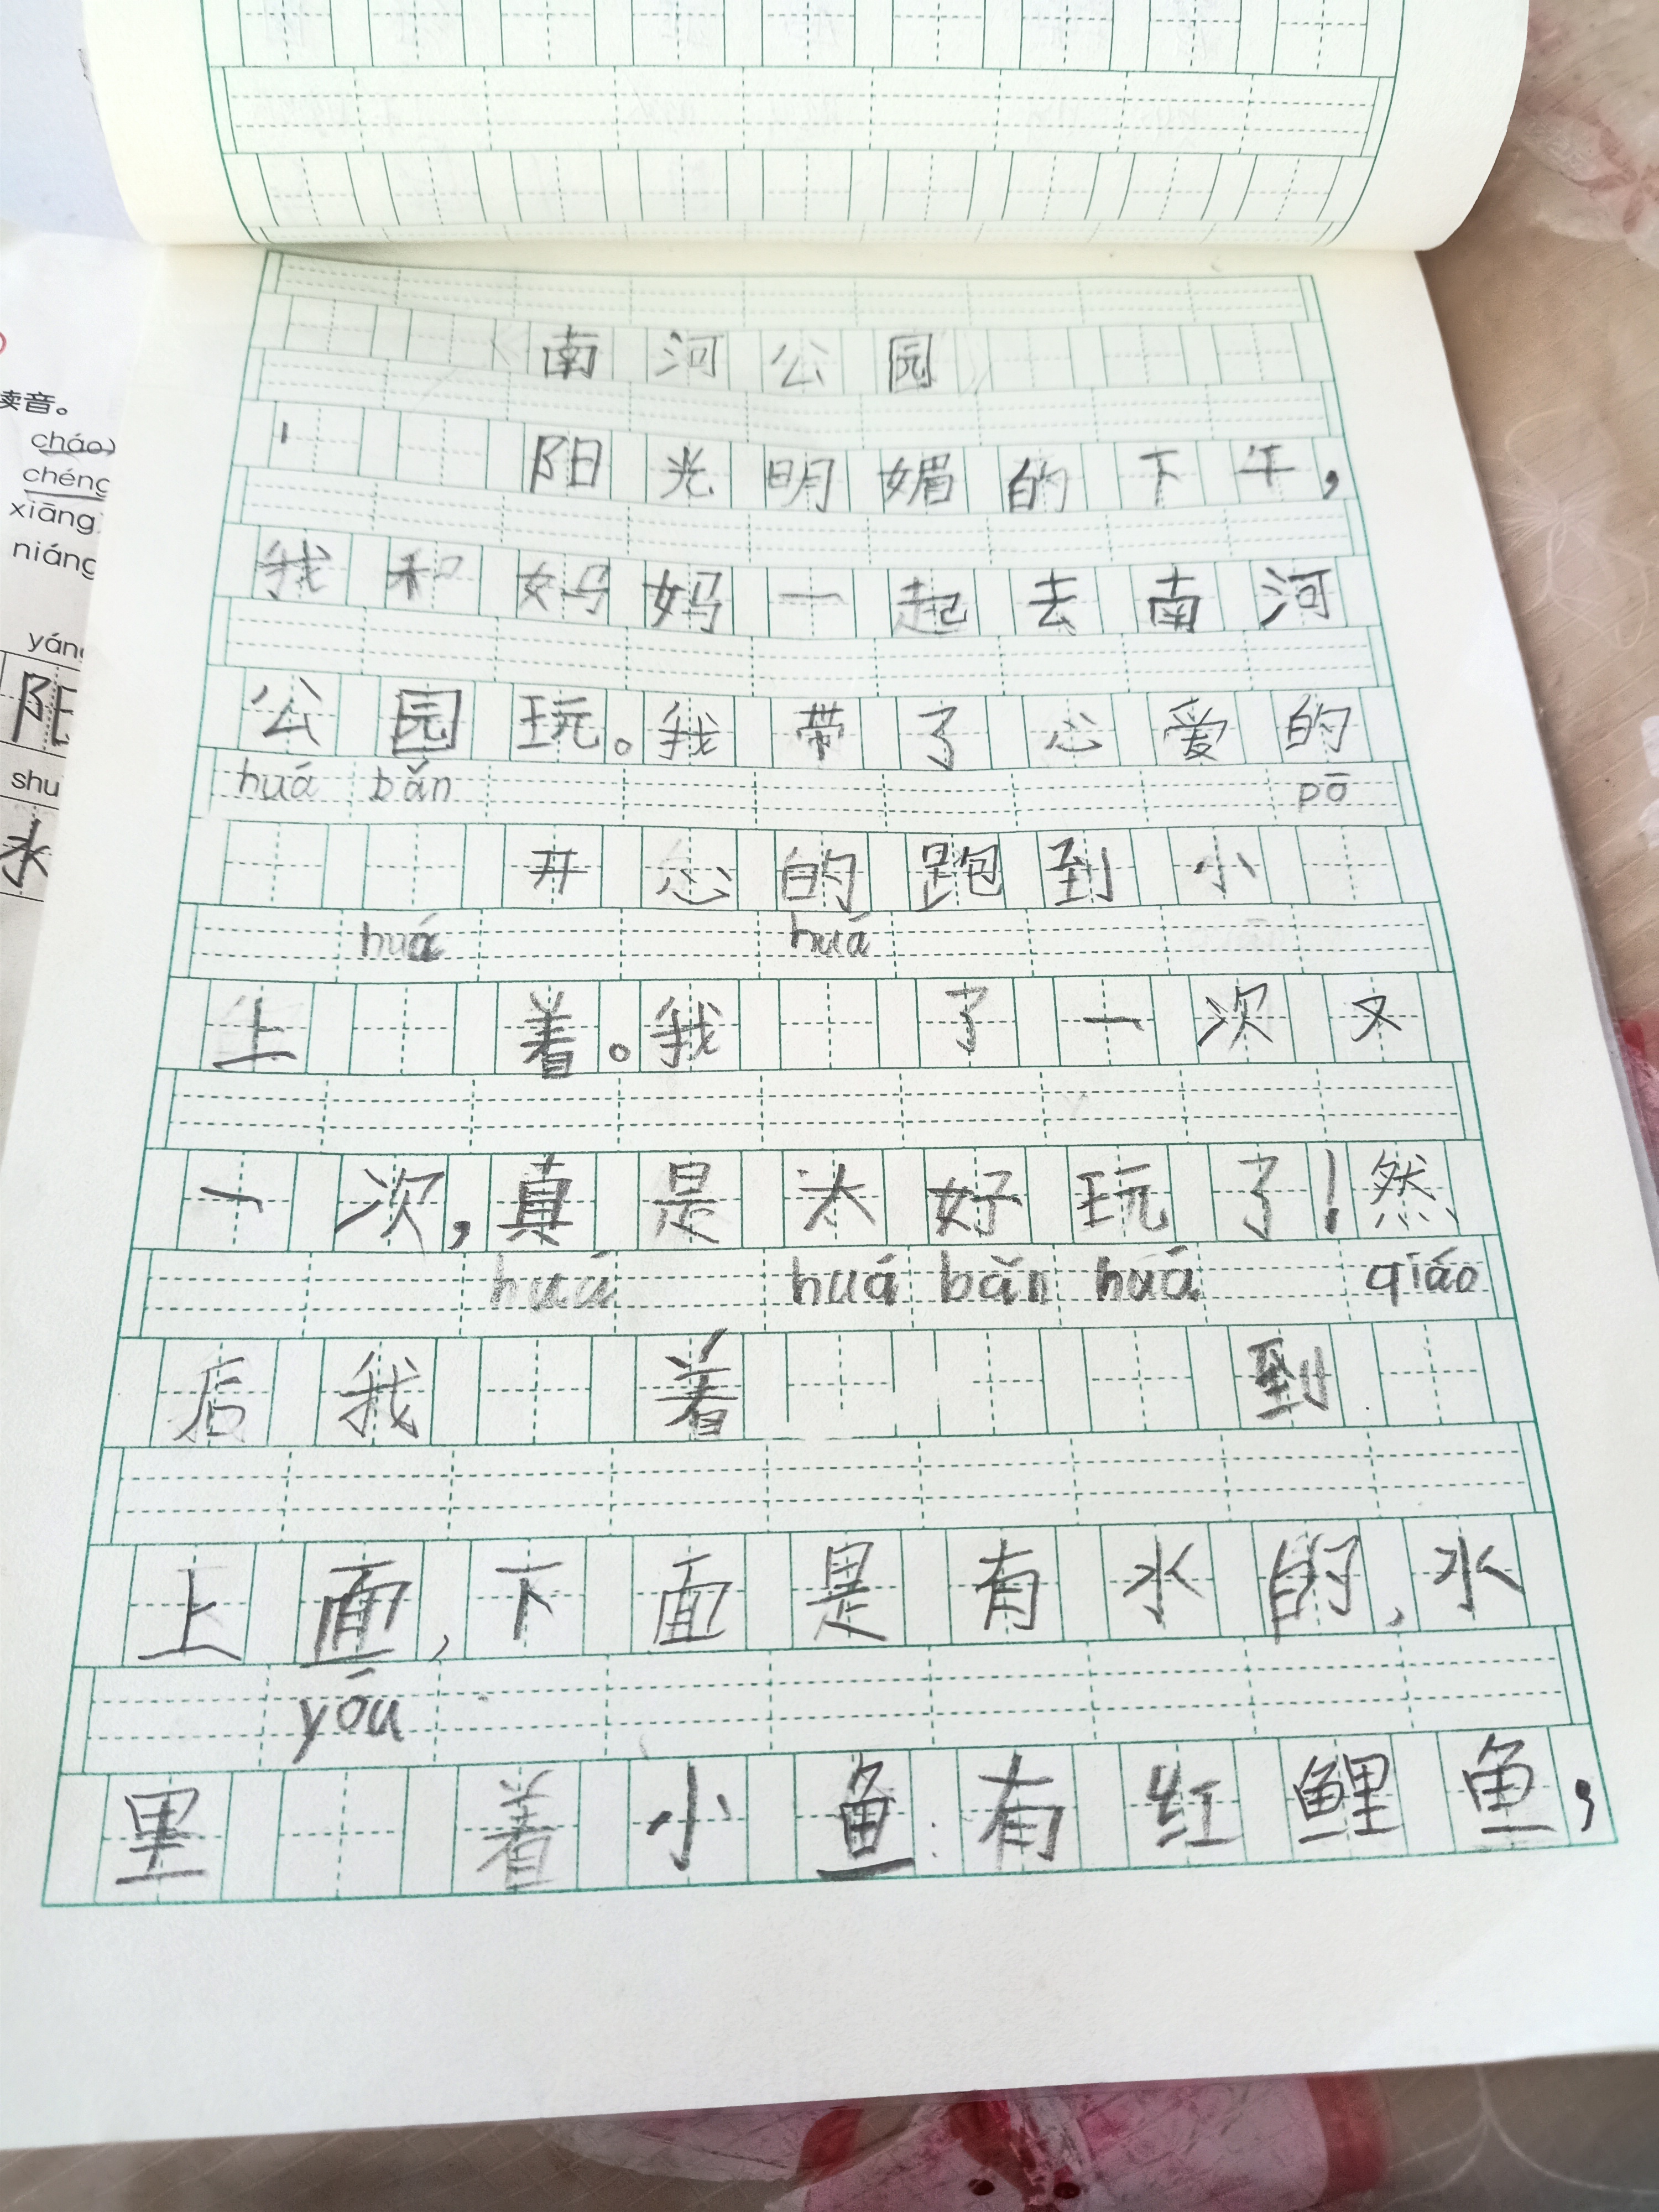 读音。
cháo
chéng
xiāng
niáng
shu
水
《南河公园》
阳光明媚的下午，
我和妈妈一起去南河
公园玩。我带了心爱的
huá bǎn pō
开心的跑到小
huá huá
上 着。我 了一次又
一次，真是太好玩了！然
huá huá bǎn huá qiáo
后我 着 到
上面，下面是有水的，水
yóu
里 着小鱼：有红鲤鱼，